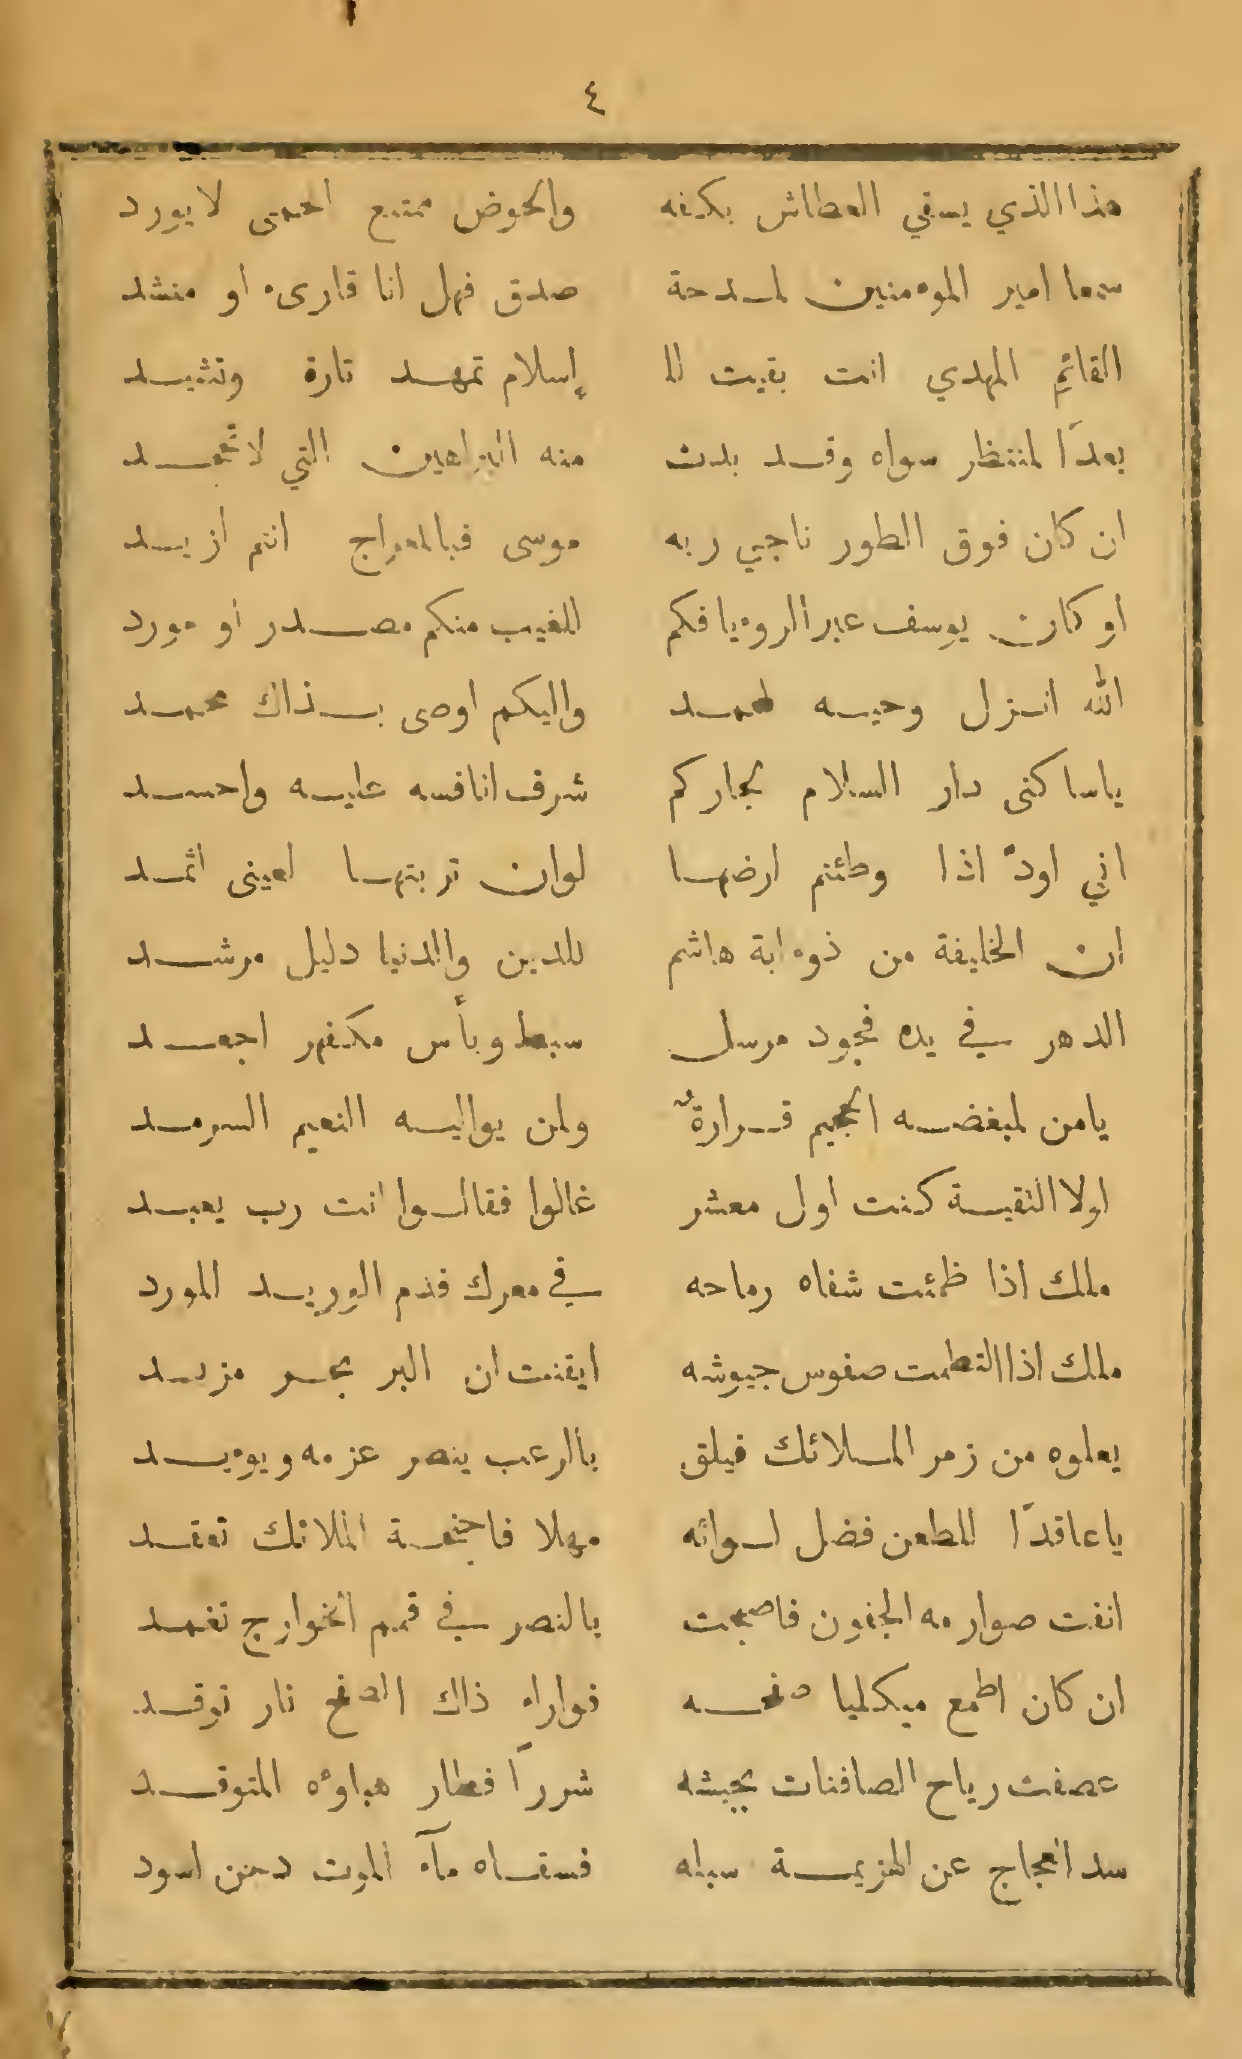 ٤
هذا الذي يسقي العطاش بكفه والحوض ممتنع الحمى لا يورد
سمعا امير الموءمنين لمدحة صدق فهل انا قارىء او منشد
القائم المهدي انت بقيت للا إسلام تمهد تارة وتشيد
بعدًا لمنتظر سواه وقد بدت منه البراهين التي لا تجحد
ان كان فوق الطور ناجى ربه موسى فبالمعراج انتم ازيد
او كان يوسف عبر الروءيا فكم للغيب منكم مصدر او مورد
الله انزل وحيه لمحمد واليكم اوصى بذاك محمد
ياساكنى دار السلام بجاركم شرف انافسه عليه واحسد
اني اودّ اذا وطئتم ارضها لوان تربتها لعينى اثمد
ان الخليفة من ذوءابة هاشم للدين والدنيا دليل مرشد
الدهر في يده فجود مرسل سبط وبأس مكفهر اجعد
يامن لمبغضه الجحيم قرارةٌ ولمن يواليه النعيم السرمد
لولا التقية كنت اول معشر غالوا فقالوا انت رب يعبد
ملك اذا ظمئت شفاه رماحه في معرك فدم الوريد المورد
ملك اذا التطمت صفوس جيوشه ايقنت ان البر بحر مزبد
يعلوه من زمر الملائك فيلق بالرعب ينصر عزمه ويوءيد
ياعاقدًا للطعن فضل لوائه مهلا فاجنحة الملائك تعقد
انفت صوارمه الجفون فاصبحت بالنصر في قمم الخوارج تغمد
ان كان اطمع ميكلميا صفحه فوراء ذاك الصفح نار توقد
عصفت رياح الصافنات بجيشه شررًا فطار هباوءه المتوقد
سد العجاج عن الهزيمة سبله فسقاه مآء الموت دجن اسود